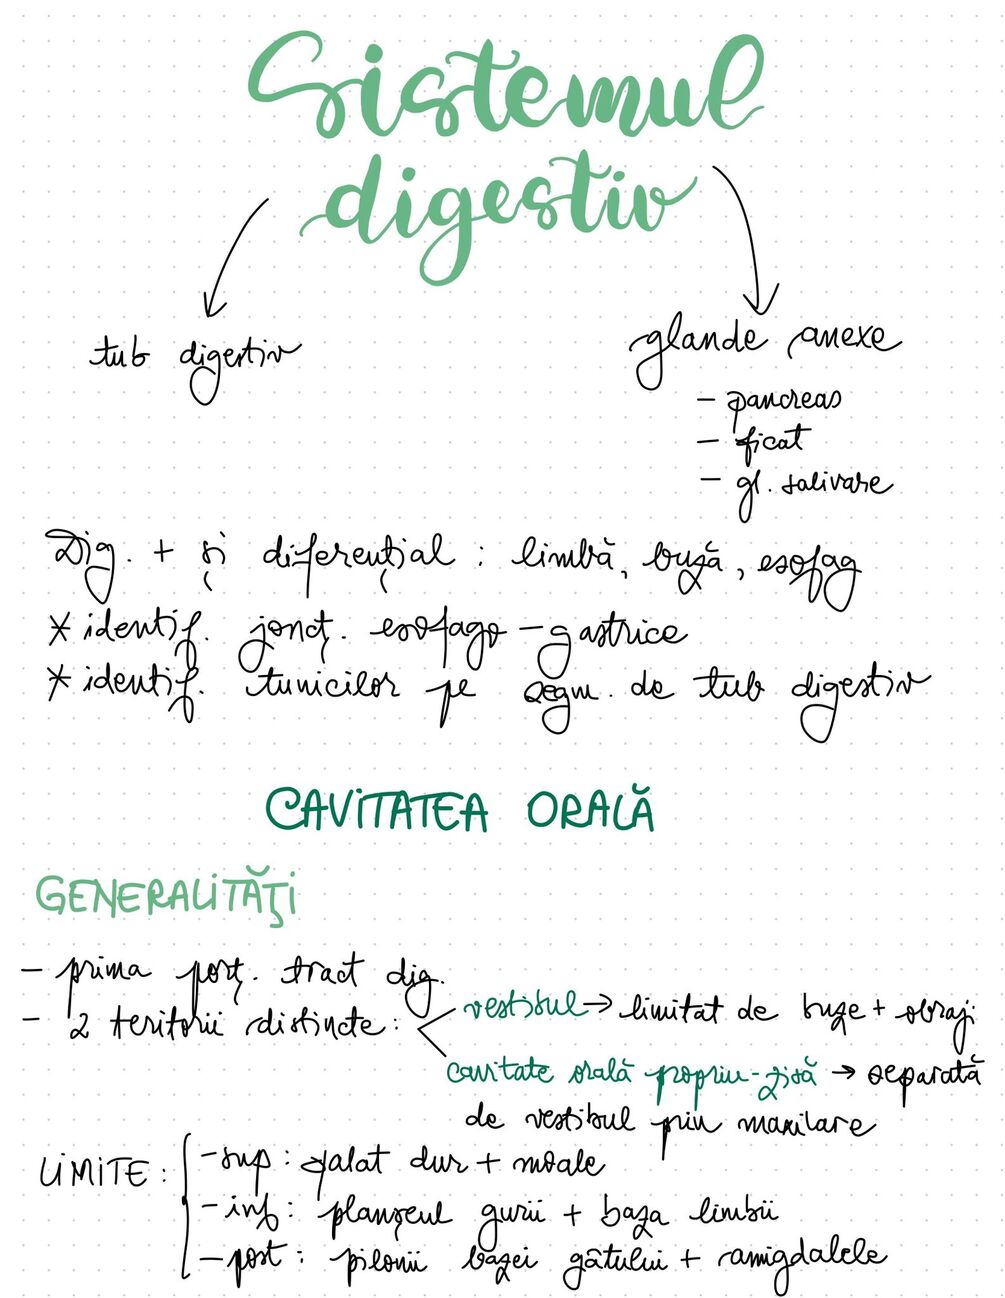 Sistemul
digestiv
tub digestiv
glande anexe
- pancreas
- ficat
- gl. salivare
Dig. + și diferențial : limbă, buză, esofag
* identif. jonct. esofago - gastrice
* identif. tunicilor pe segm. de tub digestiv
CAVITATEA ORALĂ
GENERALITĂȚI
- prima porț. tract dig.
- 2 teritorii distincte :
vestibul → limitat de buze + obraji
cavitate orală propriu-zisă → separată
de vestibul prin maxilare
LIMITE :
- sup : palat dur + moale
- inf : planșeul gurii + baza limbii
- post : pilonii bazei gâtului + amigdalele